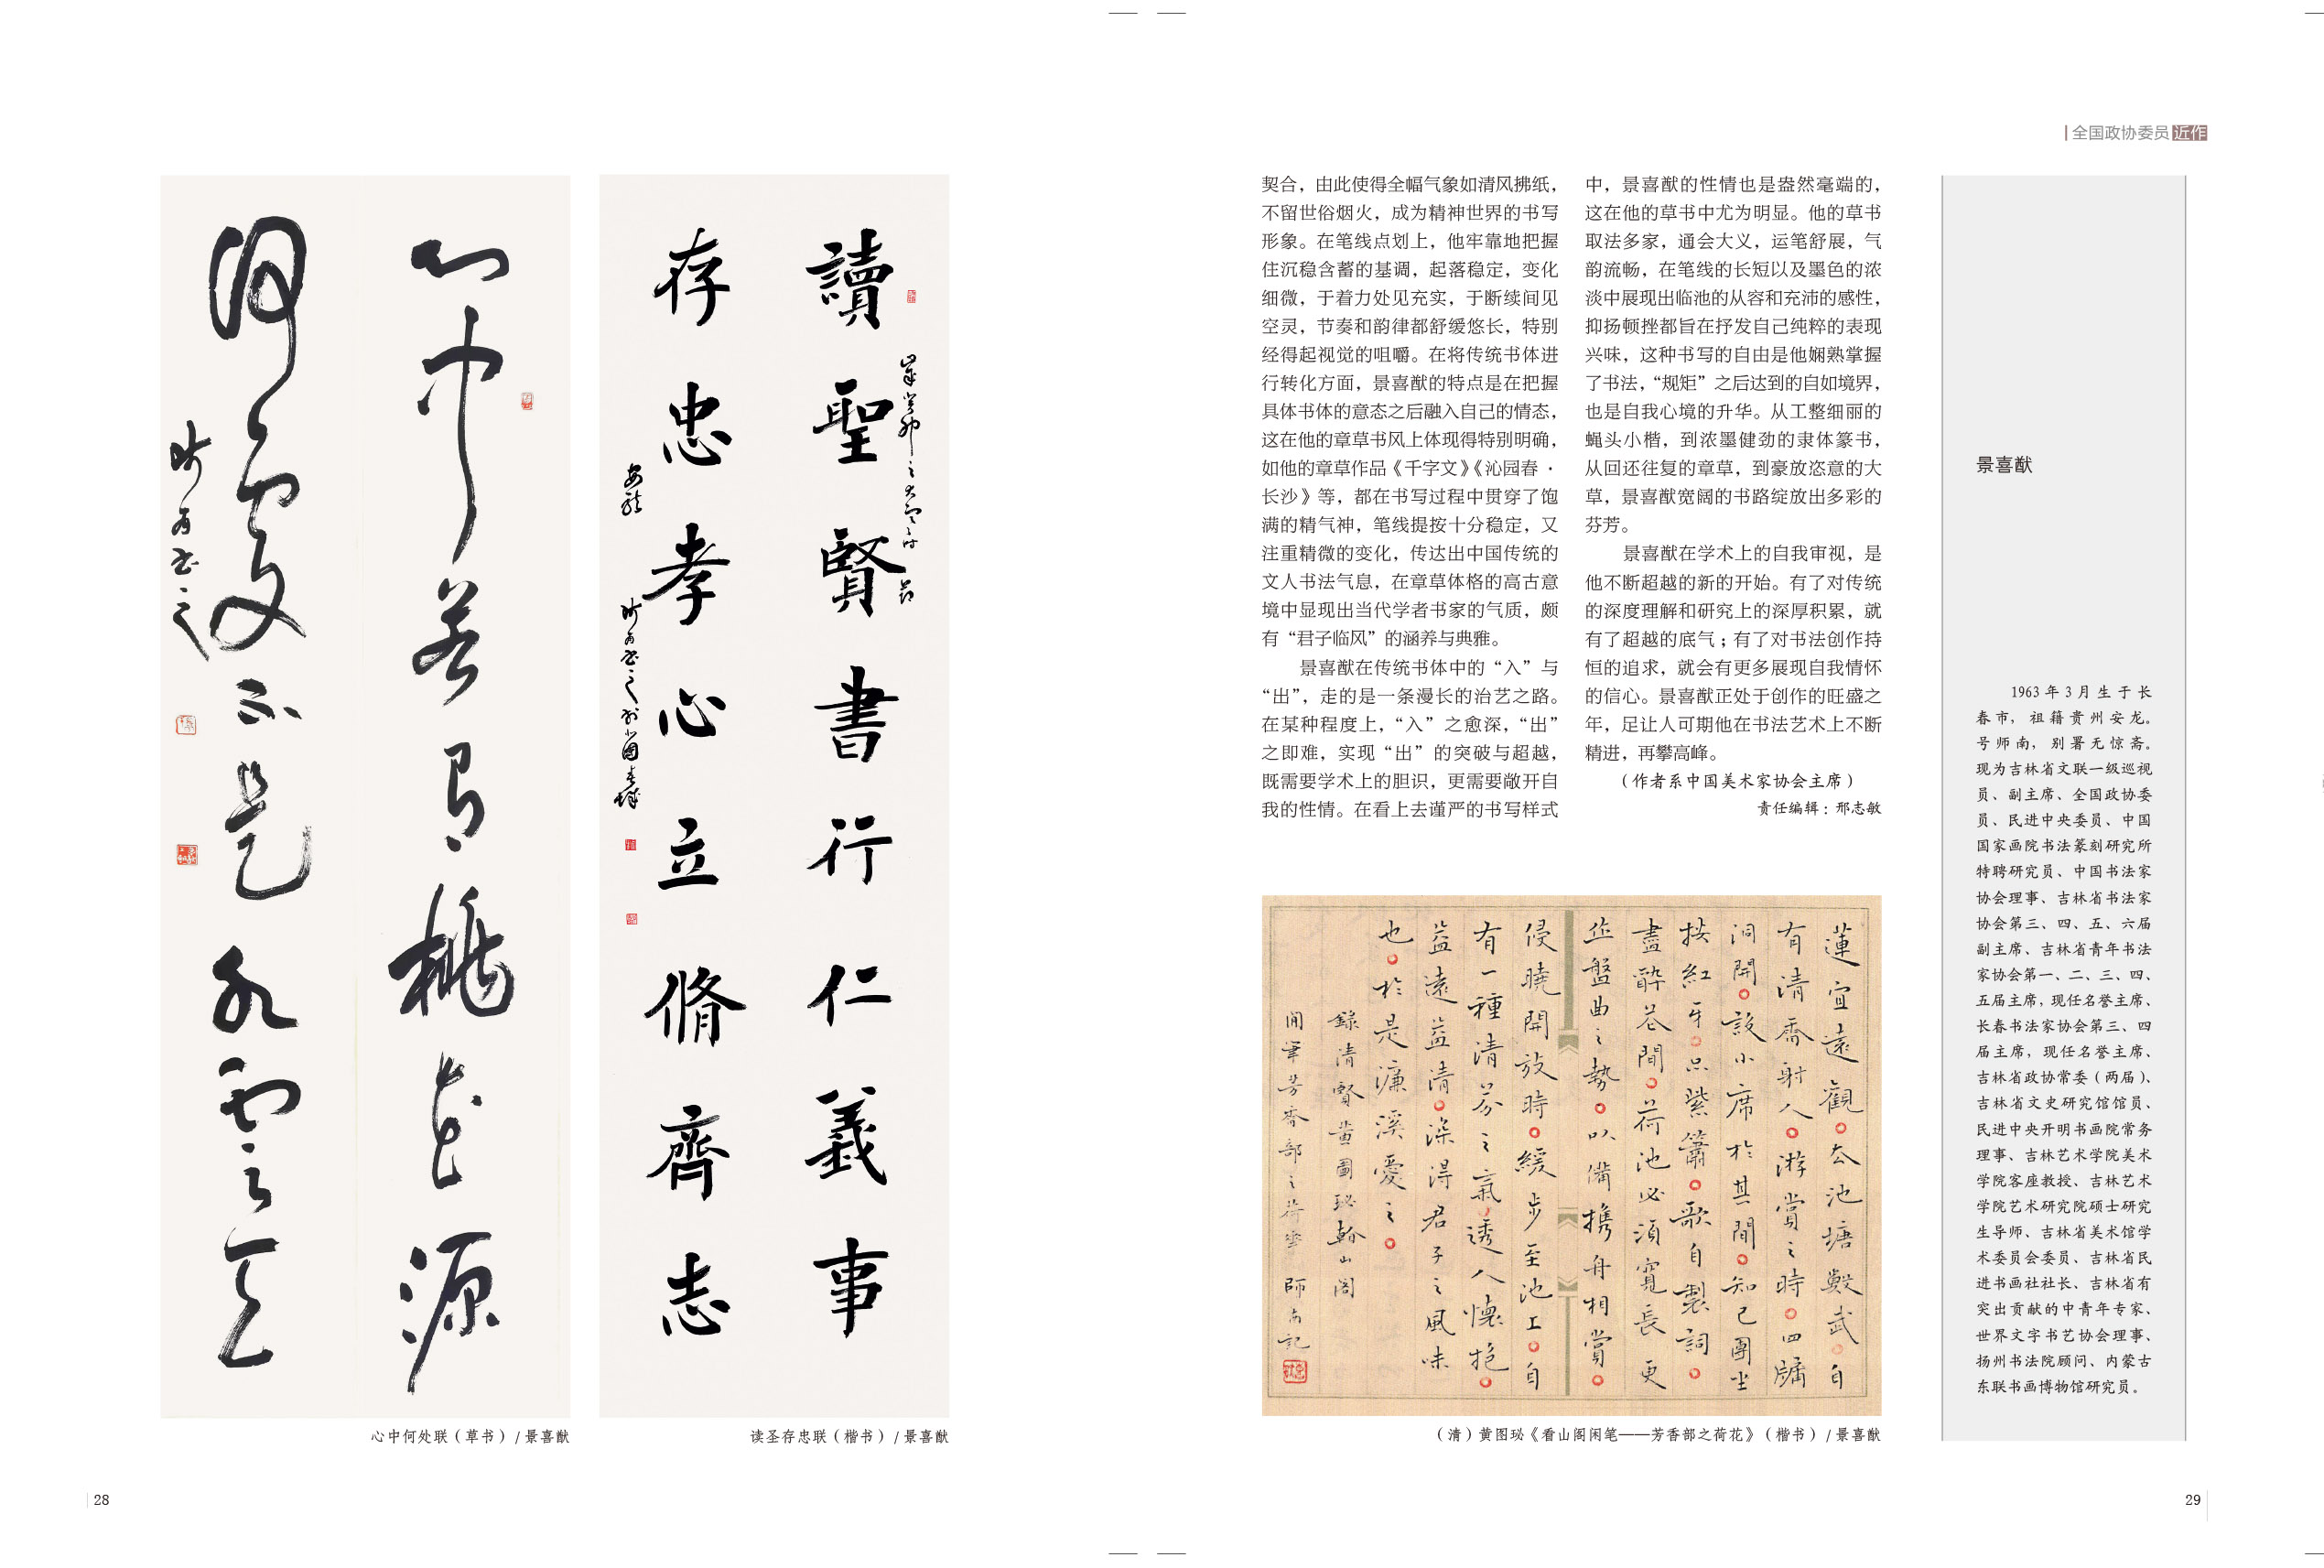 心中若有桃花源
何处不是水云间
師南書之
讀聖賢書行仁義事
存忠孝心立脩齊志
歲
安龍
師南書之於
心中何处联（草书）/ 景喜猷
读圣存忠联（楷书）/ 景喜猷
28
全国政协委员近作
契合，由此使得全幅气象如清风拂纸，
不留世俗烟火，成为精神世界的书写
形象。在笔线点划上，他牢靠地把握
住沉稳含蓄的基调，起落稳定，变化
细微，于着力处见充实，于断续间见
空灵，节奏和韵律都舒缓悠长，特别
经得起视觉的咀嚼。在将传统书体进
行转化方面，景喜猷的特点是在把握
具体书体的意态之后融入自己的情态，
这在他的章草书风上体现得特别明确，
如他的章草作品《千字文》《沁园春·
长沙》等，都在书写过程中贯穿了饱
满的精气神，笔线提按十分稳定，又
注重精微的变化，传达出中国传统的
文人书法气息，在章草体格的高古意
境中显现出当代学者书家的气质，颇
有“君子临风”的涵养与典雅。
景喜猷在传统书体中的“入”与
“出”，走的是一条漫长的治艺之路。
在某种程度上，“入”之愈深，“出”
之即难，实现“出”的突破与超越，
既需要学术上的胆识，更需要敞开自
我的性情。在看上去谨严的书写样式
中，景喜猷的性情也是盎然毫端的，
这在他的草书中尤为明显。他的草书
取法多家，通会大义，运笔舒展，气
韵流畅，在笔线的长短以及墨色的浓
淡中展现出临池的从容和充沛的感性，
抑扬顿挫都旨在抒发自己纯粹的表现
兴味，这种书写的自由是他娴熟掌握
了书法，“规矩”之后达到的自如境界，
也是自我心境的升华。从工整细丽的
蝇头小楷，到浓墨健劲的隶体篆书，
从回还往复的章草，到豪放恣意的大
草，景喜猷宽阔的书路绽放出多彩的
芬芳。
景喜猷在学术上的自我审视，是
他不断超越的新的开始。有了对传统
的深度理解和研究上的深厚积累，就
有了超越的底气；有了对书法创作持
恒的追求，就会有更多展现自我情怀
的信心。景喜猷正处于创作的旺盛之
年，足让人可期他在书法艺术上不断
精进，再攀高峰。
（作者系中国美术家协会主席）
责任编辑：邢志敏
蓮宜遠觀去池塘數武自
有清香射人游賞之時四牖
洞開設小席於其間知己團坐
按紅牙品紫簫歌自製詞
盡醉花間荷池必須寬長更
作盤曲之勢以備携舟相賞
侵曉開放時緩步至池上自
有一種清芬之氣透人懷抱
益遠益清深得君子之風味
也於是濂溪愛之
錄清賢黃圖珌看山閣
閒筆芳香部之荷花師南記
（清）黄图珌《看山阁闲笔——芳香部之荷花》（楷书）/ 景喜猷
景喜猷
1963年3月生于长
春市，祖籍贵州安龙。
号师南，别署无惊斋。
现为吉林省文联一级巡视
员、副主席、全国政协委
员、民进中央委员、中国
国家画院书法篆刻研究所
特聘研究员、中国书法家
协会理事、吉林省书法家
协会第三、四、五、六届
副主席、吉林省青年书法
家协会第一、二、三、四、
五届主席，现任名誉主席、
长春书法家协会第三、四
届主席，现任名誉主席、
吉林省政协常委（两届）、
吉林省文史研究馆馆员、
民进中央开明书画院常务
理事、吉林艺术学院美术
学院客座教授、吉林艺术
学院艺术研究院硕士研究
生导师、吉林省美术馆学
术委员会委员、吉林省民
进书画社社长、吉林省有
突出贡献的中青年专家、
世界文字书艺协会理事、
扬州书法院顾问、内蒙古
东联书画博物馆研究员。
29